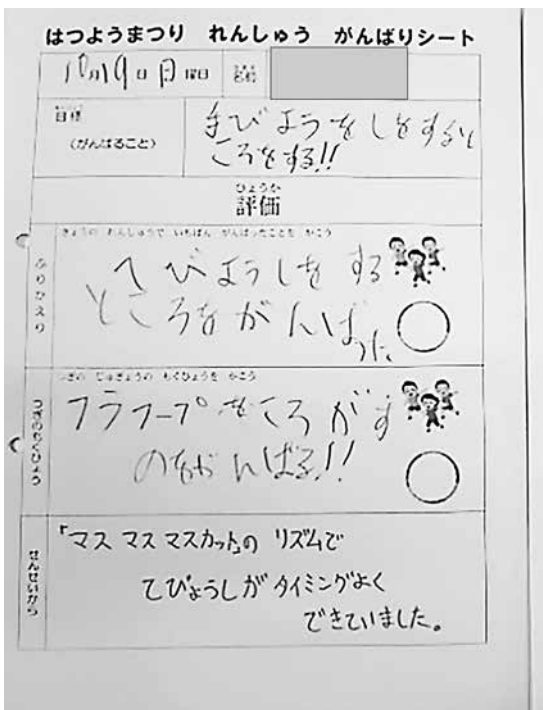 はつようまつり れんしゅう がんばりシート
10月19日 月 曜日 名前
目標
(がんばること)
手びようをしをすると
ころをする!!
ひょうか
評価
きょうの れんしゅうで いちばん がんばったことを かこう
ふりかえり
てびようしをする
ところをがんばった
つぎの じゅぎょうの もくひょうを かこう
つぎのもくひょう
フラフープをころがす
のをがんばる!!
せんせいから
「マス マス マスカット」の リズムで
てびょうしが タイミングよく
できていました。